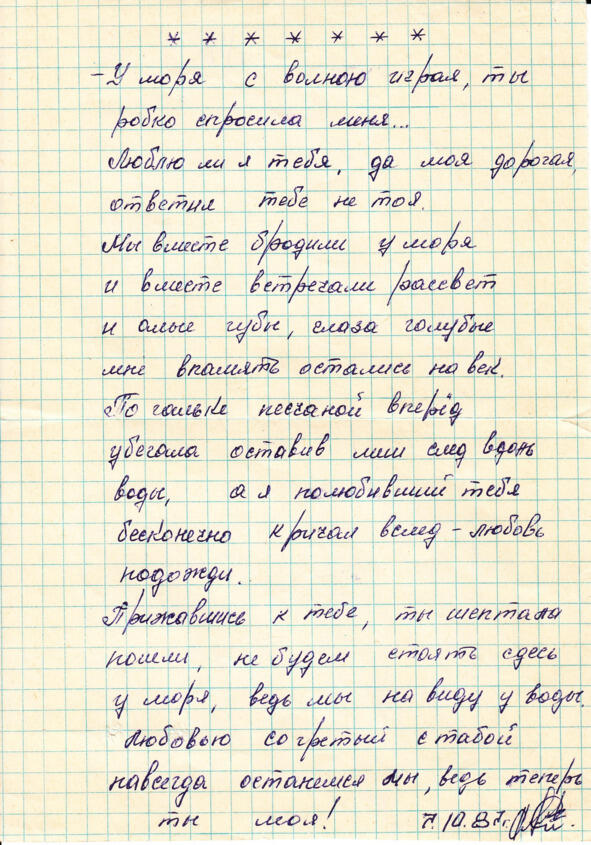 * * * * * * *
- У моря с волною играя, ты
робко спросила меня...
Люблю ли я тебя, да моя дорогая,
ответил тебе не тоя.
Мы вместе бродили у моря
и вместе встречали рассвет
и алые губы, глаза голубые
мне впамять остались на век.
По гальке песчаной вперёд
убегала оставив лиш след вдоль
воды, а я полюбивший тебя
бесконечно кричал вслед - любовь
подожди.
Прижавшись к тебе, ты шептала
пошли, не будем стоять сдесь
у моря, ведь мы на виду у воды.
Любовью согретый с табой
навсегда останемся мы, ведь теперь
ты моя! 7.10.87г.